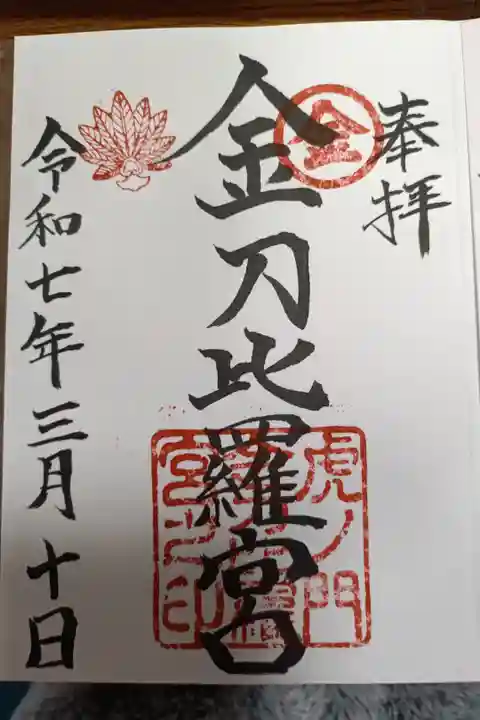 奉拝
金
金刀比羅宮
虎ノ門
金刀比羅
宮之印
令和七年三月十日